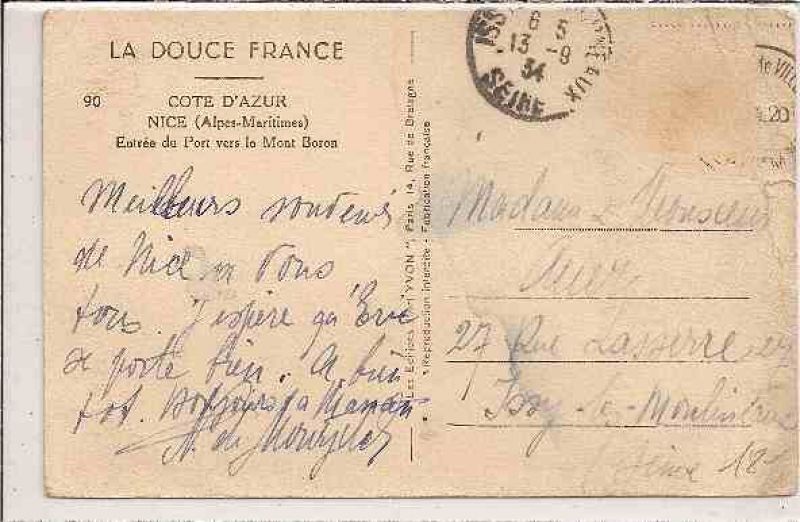 LA DOUCE FRANCE
90 COTE D'AZUR
NICE (Alpes-Maritimes)
Entrée du Port vers le Mont Boron
Meilleurs souvenirs
de Nice à vous
tous. J'espère qu'Eric
se porte bien. A bien
tot. Maman
Les Editions d'Art "YVON", Paris 14, Rue de Bretagne
Reproduction interdite - Fabrication française
ISS AUX
6 5
13 -9
34
SEINE
de VIL
.20
Madame Monsieur
27 Rue Lasserre
Issy-les-Moulineaux
Seine